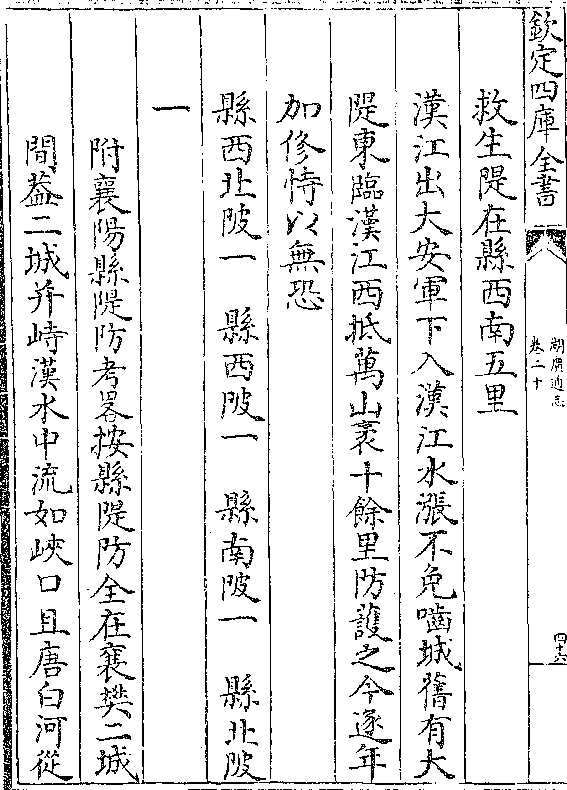 欽定四庫全書
湖廣通志
卷二十
四十六
救生隄在縣西南五里
漢江出大安軍下入漢江水漲不免嚙城舊有大
隄東臨漢江西抵萬山袤十餘里防護之今逐年
加修恃以無恐
縣西北陂一　縣西陂一　縣南陂一　縣北陂
一
附襄陽縣隄防考畧按縣隄防全在襄樊二城
間葢二城并峙漢水中流如峽口且唐白河從